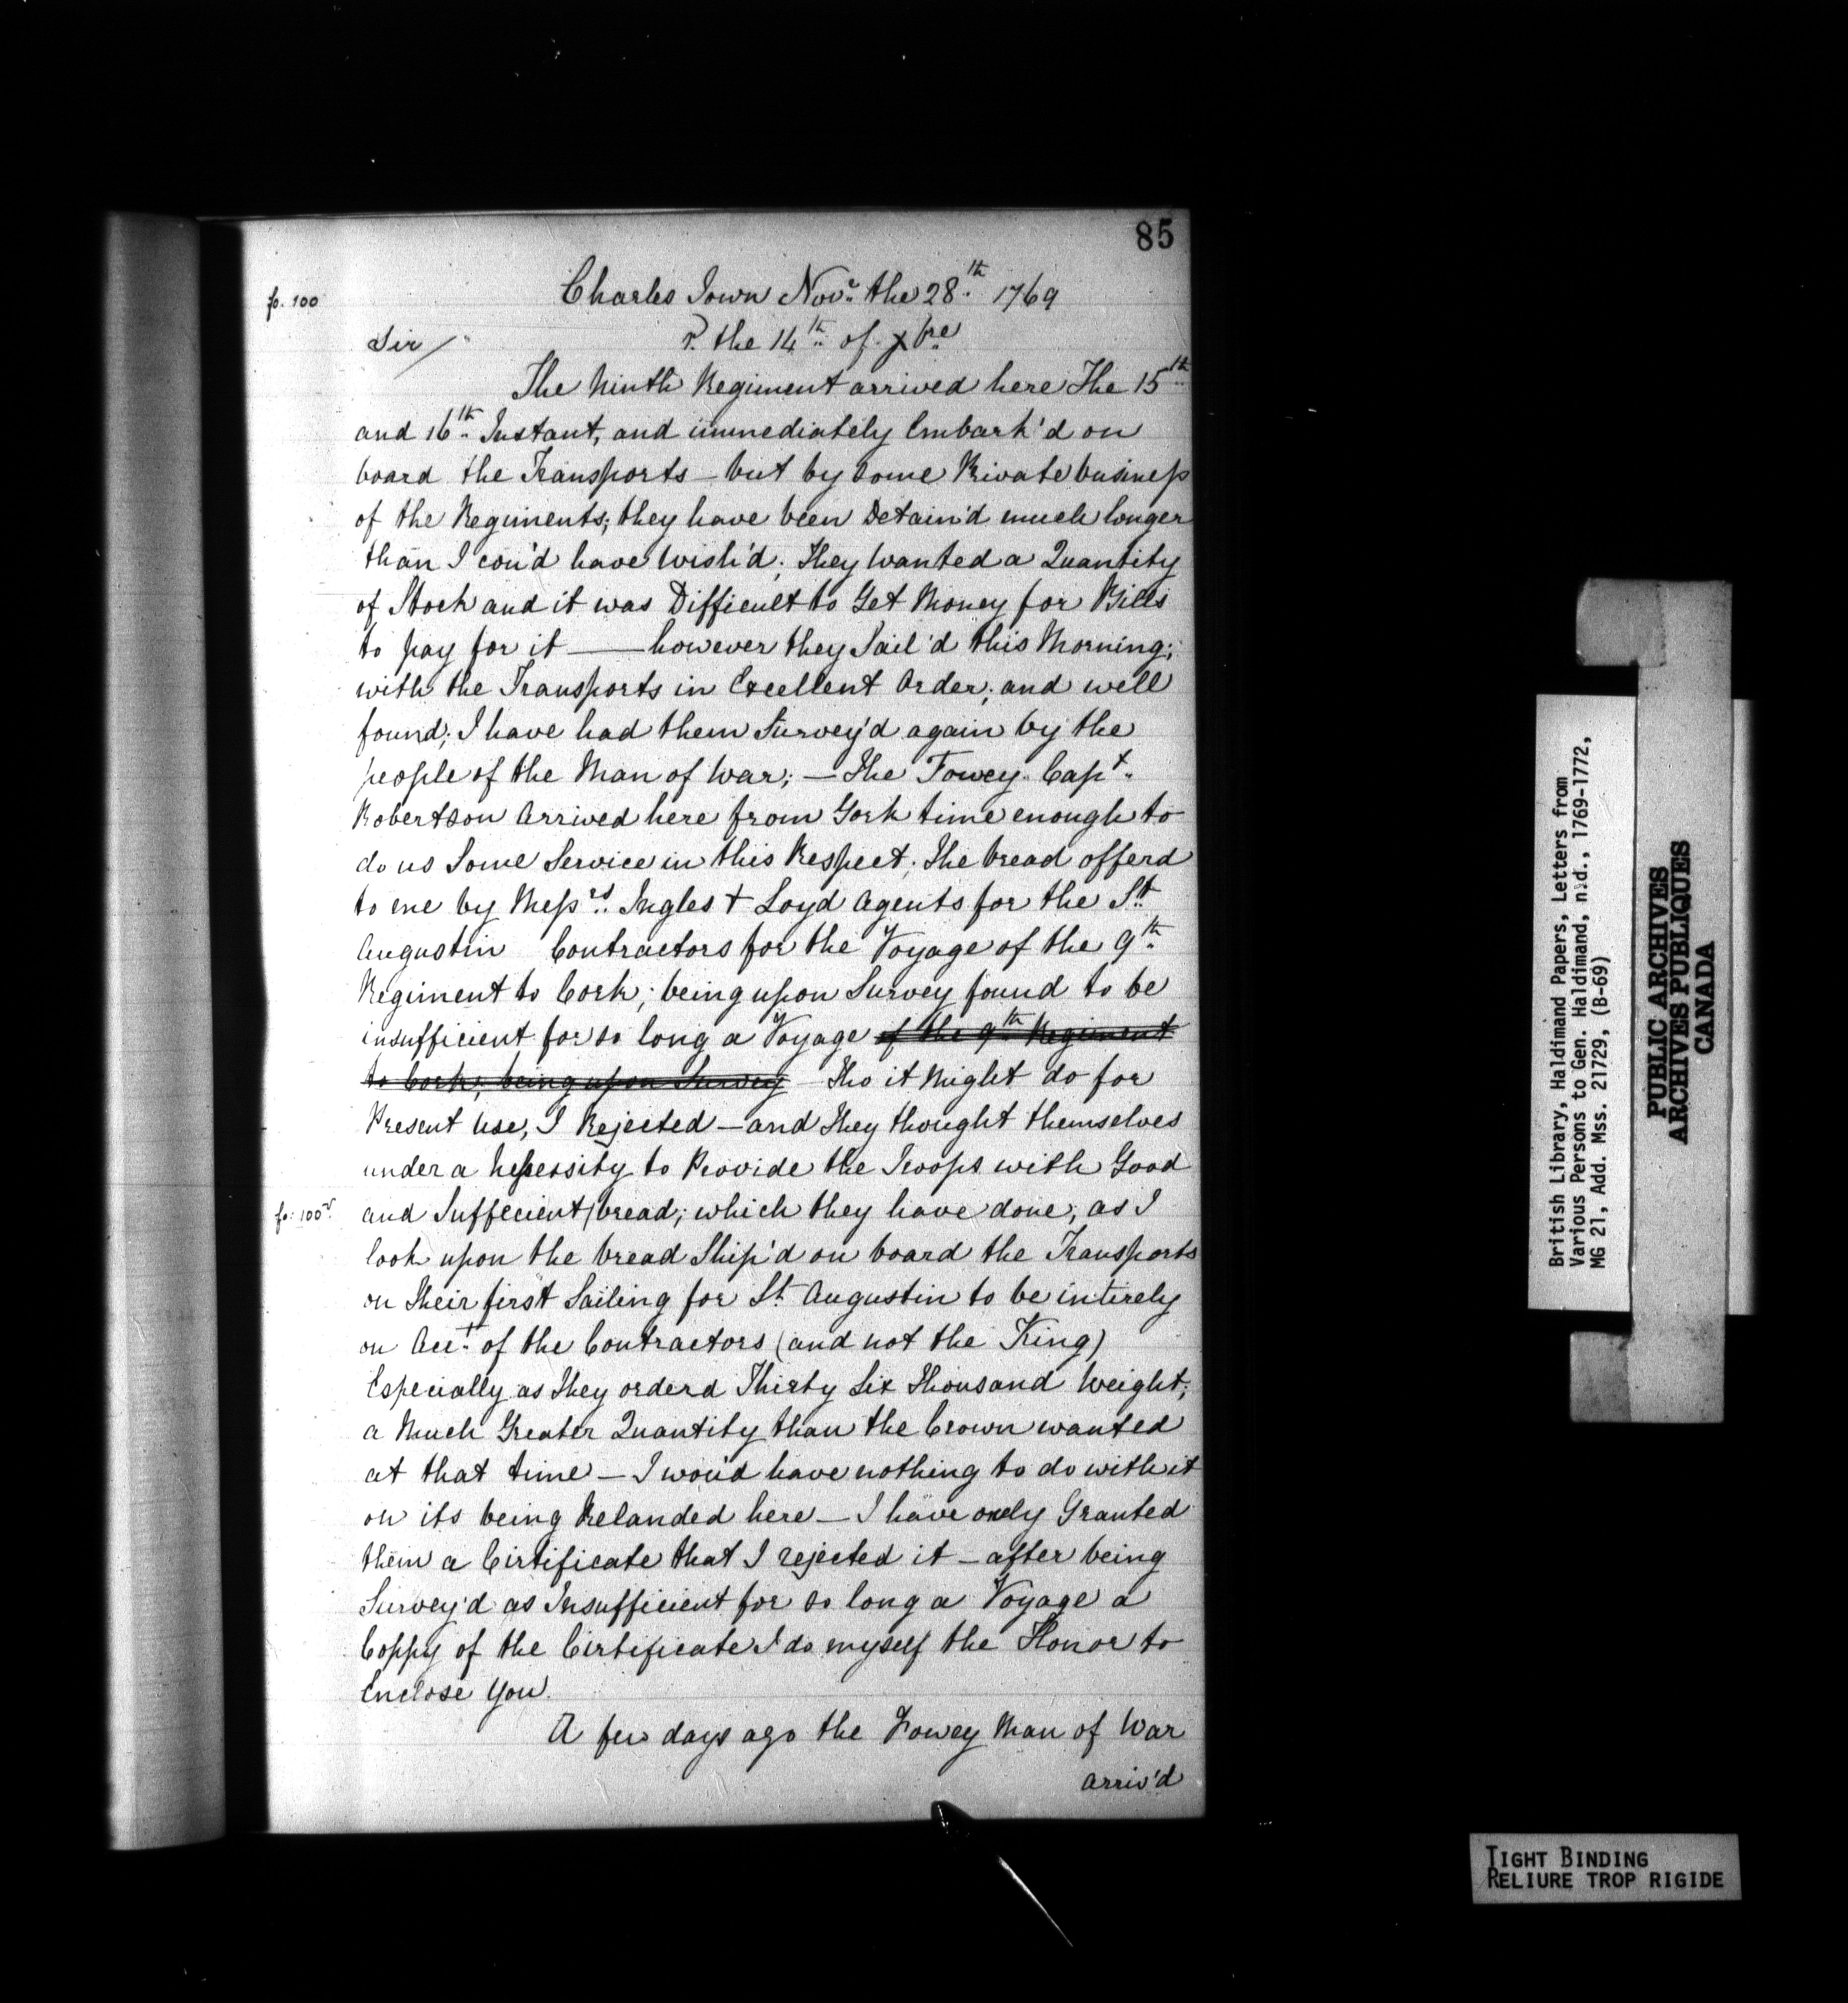 85
fo. 100
Charles Town Novr. the 28th. 1769
Sir/
r. the 14th. of xbre
The Ninth Regiment arrived here The 15th.
and 16th. Instant, and immediately Embark'd on
board the Transports — but by some Private business
of the Regiments; they have been Detain'd much longer
than I cou'd have wish'd; They wanted a Quantity
of Stock and it was Difficult to Get Money for Bills
to pay for it —— however they Sail'd this Morning;
with the Transports in Excellent Order; and well
found; I have had them Survey'd again by the
people of the Man of War; — The Fowey Capt.
Robertson Arrived here from York time enough to
do us Some Service in this Respect; The bread offerd
to me by Messrs. Ingles & Loyd Agents for the St.
Augustin Contractors for the Voyage of the 9th.
Regiment to Cork; being upon Survey found to be
insufficient for so long a Voyage of the 9th Regiment
to Cork; being upon Survey Tho it Might do for
Present use, I Rejected — and They thought themselves
under a Nessessity to Provide the Troops with Good
fo: 100v.
and Suffecient/bread; which they have done; as I
look upon the bread Ship'd on board the Transports
on Their first Sailing for St. Augustin to be intirely
on Acct. of the Contractors (and not the King)
Especially as They orderd Thirty Six Thousand Weight;
a Much Greater Quantity than the Crown wanted
at that time — I wou'd have nothing to do with it
on its being Relanded here — I have only Granted
them a Certificate that I rejected it — after being
Survey'd as Insufficient for so long a Voyage a
Coppy of the Certificate I do myself the Honor to
Enclose You.
A few days ago the Fowey Man of War
arriv'd
British Library, Haldimand Papers, Letters from
Various Persons to Gen. Haldimand, n.d., 1769-1772,
MG 21, Add. Mss. 21729, (B-69)
PUBLIC ARCHIVES
ARCHIVES PUBLIQUES
CANADA
TIGHT BINDING
RELIURE TROP RIGIDE